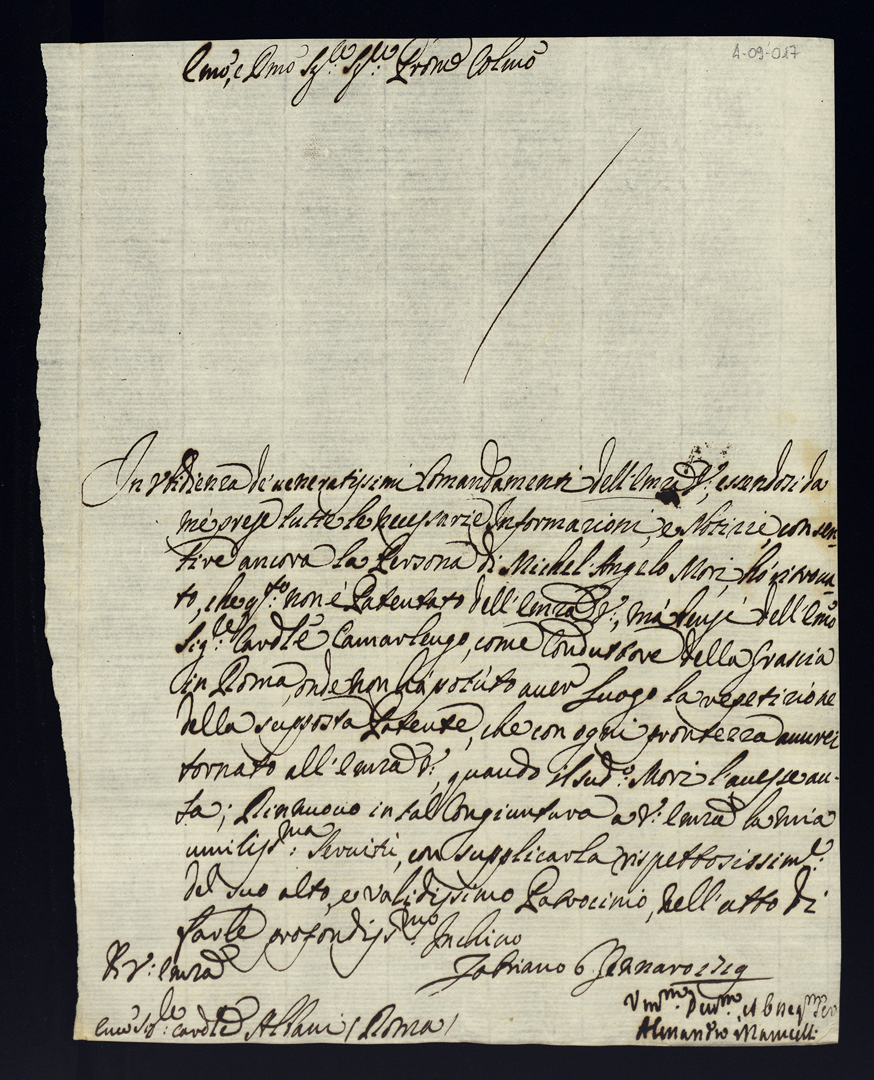 4-09-017
Emo, e Rmo Sige Sige Prone Colmo
In Vbidienza de' veneratissimi Comandamenti dell'Emza Va, essendosi da
mè prese tutte le necessarie Informazioni, e Notizie, con sen-
tire ancora la Persona di Michel'Angelo Mori, hò ritroua-
to, che qsto non è Patentato dell'Emza Va, mà bensì dell'Emo
Sige Cardle Camarlengo, come Conduttore della Grascia
in Roma, onde non hà potuto auer luogo la repetizione
della supposta Patente, che con ogni prontezza aurei
tornato all'Emza Va, quando il sudo Mori l'auesse au-
ta; Rinnuouo in tal Congiuntura a Va Emza la mia
umilissma Seruitù, con supplicarla rispettosissime
del suo alto, e validissimo Patrocinio, nell'atto di
farle profondissmo Inchino
Di Va Emza
Fabriano 6 Gennaro 1719
Emo Sige Cardle Albani (Roma)
Vmmo Deumo et Obbligmo Ser